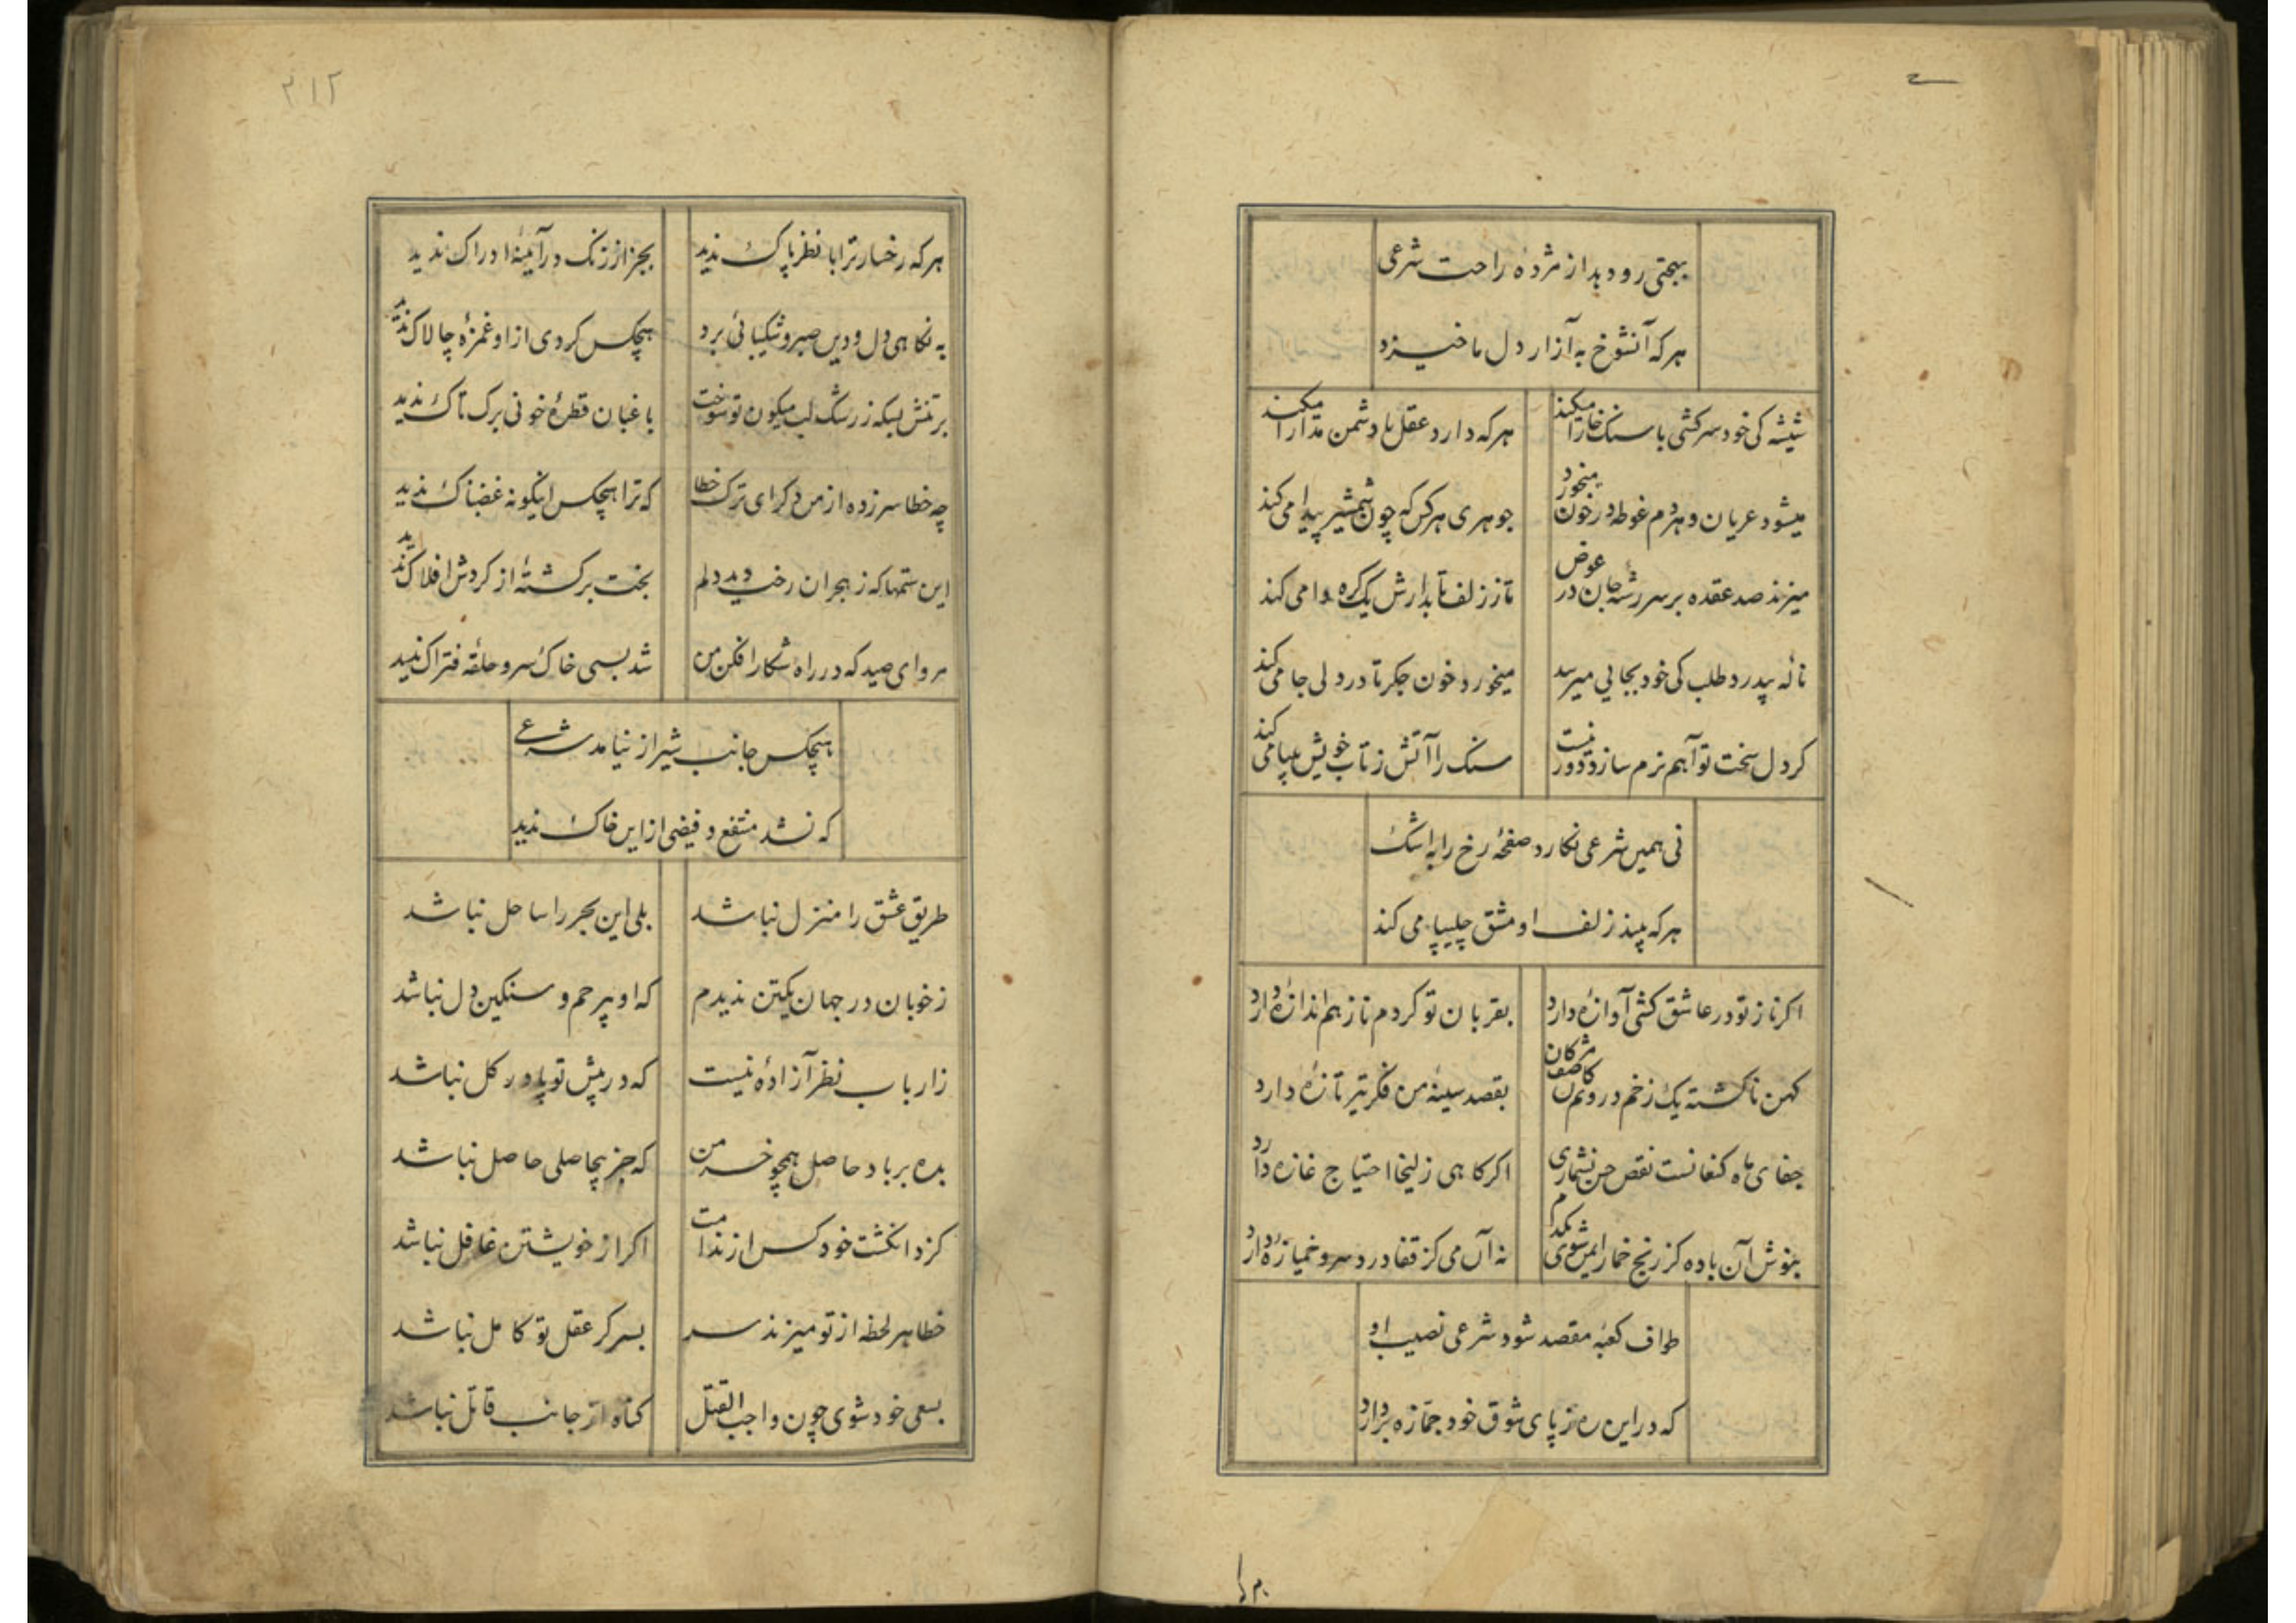 بیجتی رود بداز مژده راحت شرعی
هرکه آنشوخ به آزار دل ما خیزد
شیشه کی خود سرکشی با سنک خارا میکند هرکه دارد عقل با دشمن مدارا میکند
میشود عریان و هردم غوطه در خون میخورد جوهری هرکس که چون شمشیر پیدا می کند
میزند صد عقده بر سر رشتهٔ جان در عوض تا ز زلف تابدارش یک گره وا می کند
نالهٔ پیدرد طلب کی خود بجایی میرسد میخورد خون جکر تا در دلی جا می کند
کر دل سخت تو آهم نرم سازد دور نیست سنک را آتش ز تاب خویش میپا می کند
نی همین شرعی نکارد صفحهٔ رخ را به اشک
هرکه بیند زلف او مشق چلیپا می کند
اکر ناز تو در عاشق کشی آوازهٔ دارد بقربان تو کردم ناز هم اندازهٔ دارد
کهن ناکشته یک زخم درونم کان صف مژکان بقصد سینهٔ من فکر تیر تازهٔ دارد
جفای ماه کنعانست نقص حسن نشماری اکر کاهی زلیخا احتیاج غازه دارد
بنوش آن باده کز رنج خمار ایمن شوی یکدم نه آن می کز قفا درد سر و خمیازهٔ دارد
طواف کعبهٔ مقصد شود شرعی نصیب او
که در این ره ز پای شوق خود جمازه بردارد
۲۱۲
هرکه رخسار ترا با نظر پاک ندید بجز از زنک در آیینهٔ ادراک ندید
به نکاهی دل و دین صبر و شکیبائی برد هیچکس کردی از او غمزهٔ چالاک ندید
بر تنش بسکه ز رشک لب میکون تو سوخت باغبان قطرهٔ خونی برک تاک ندید
چه خطا سر زده از من دکر ای ترک خطا که ترا هیچکس اینکونه غضبناک ندید
این ستمها که ز هجران رخت دید دلم بخت برکشتهٔ از کردش افلاک ندید
مرو ای صید که در راه شکار افکن من شد بسی خاک سر و حلقه فتراک ندید
هیچکس جانب شیراز نیامد شرعی
که نشد منتفع و فیضی از این خاک ندید
طریق عشق را منزل نباشد بلی این بحر را ساحل نباشد
ز خوبان در جهان یکتن ندیدم که او بیرحم و سنکین دل نباشد
ز ارباب نظر آزادهٔ نیست که در پیش تو پا در کل نباشد
بده بر باد حاصل همچو خرمن که جز بیحاصلی حاصل نباشد
کزد انکشت خود کس از ندامت اکر از خویشتن غافل نباشد
خطا هر لحظه از تو میزند سر بسر کر عقل تو کامل نباشد
بسعی خود شوی چون واجب القتل کناه از جانب قاتل نباشد